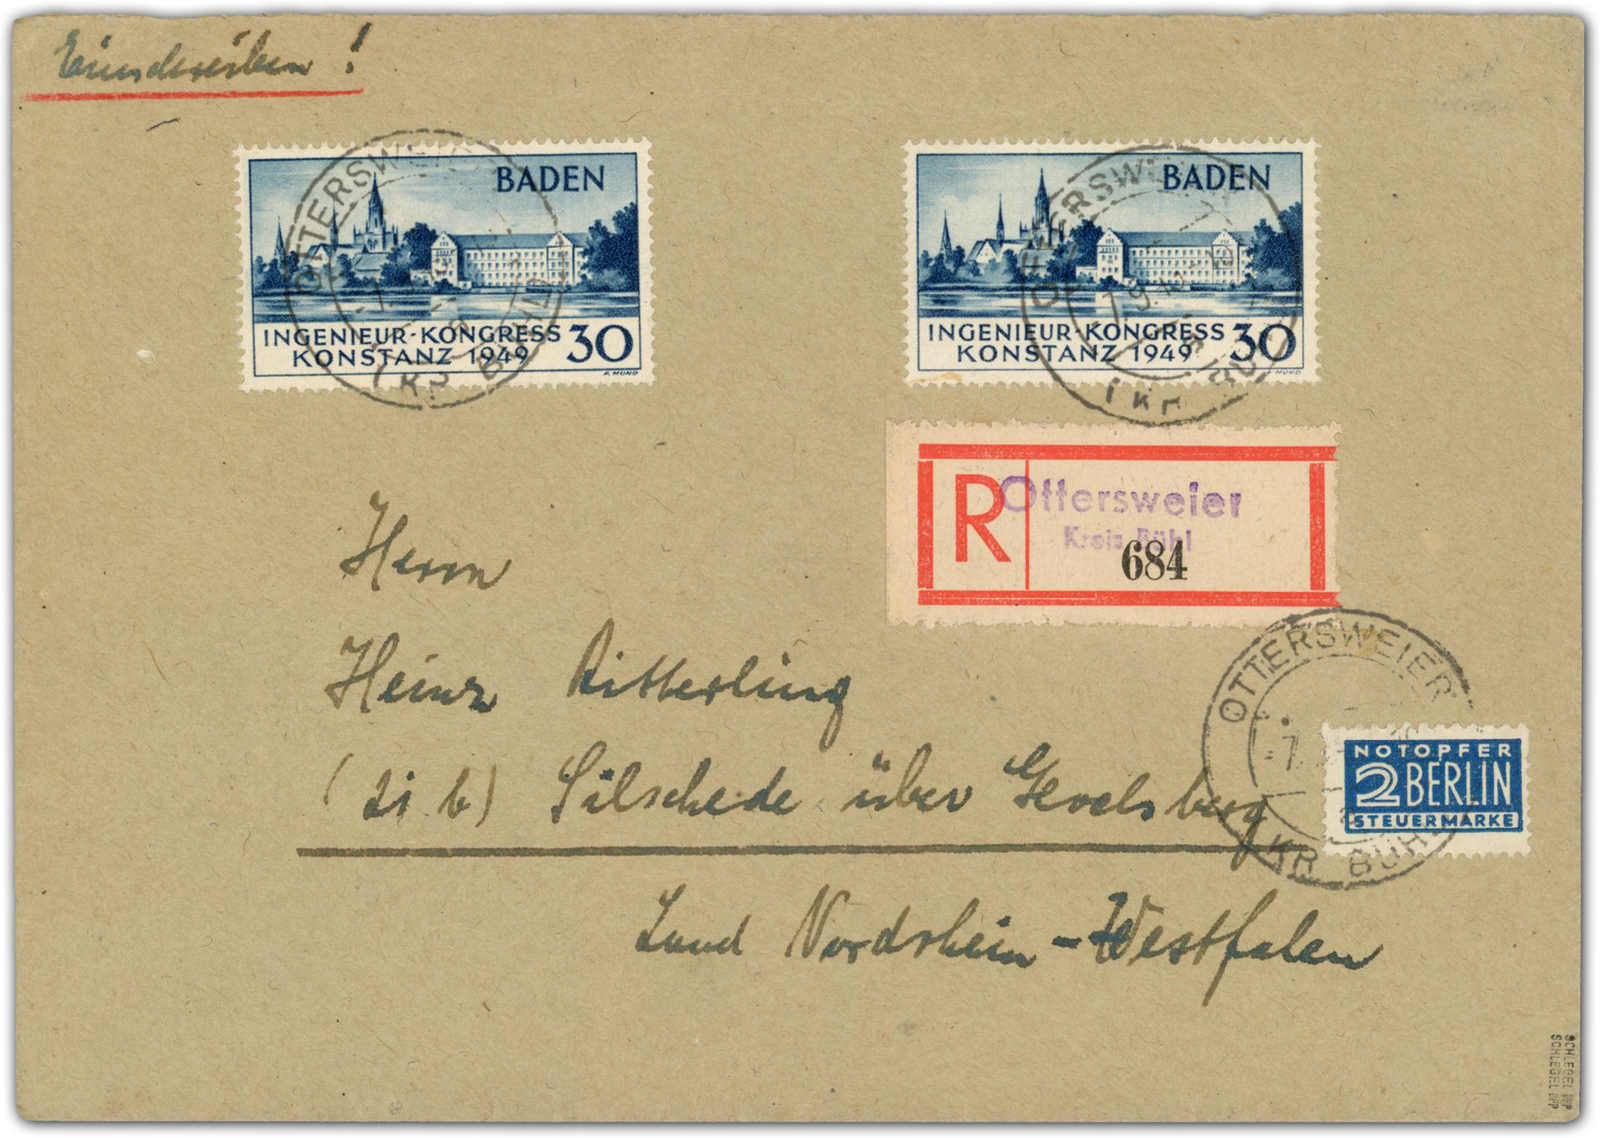 Einschreiben!
OTTERSWEIER
(KR BÜHL)
BADEN
INGENIEUR-KONGRESS
KONSTANZ 1949
30
A. MUND
OTTERSWEIER
-7.9.49
(KR BÜHL)
BADEN
INGENIEUR-KONGRESS
KONSTANZ 1949
30
MUND
R
Ottersweier
Kreis Bühl
684
Herrn
Heinz Ritterling
(21 b) Silschede über Gevelsberg
Land Nordrhein-Westfalen
OTTERSWEIER
(KR BÜHL)
NOTOPFER
2 BERLIN
STEUERMARKE
SCHLEGEL BPP
SCHLEGEL BPP